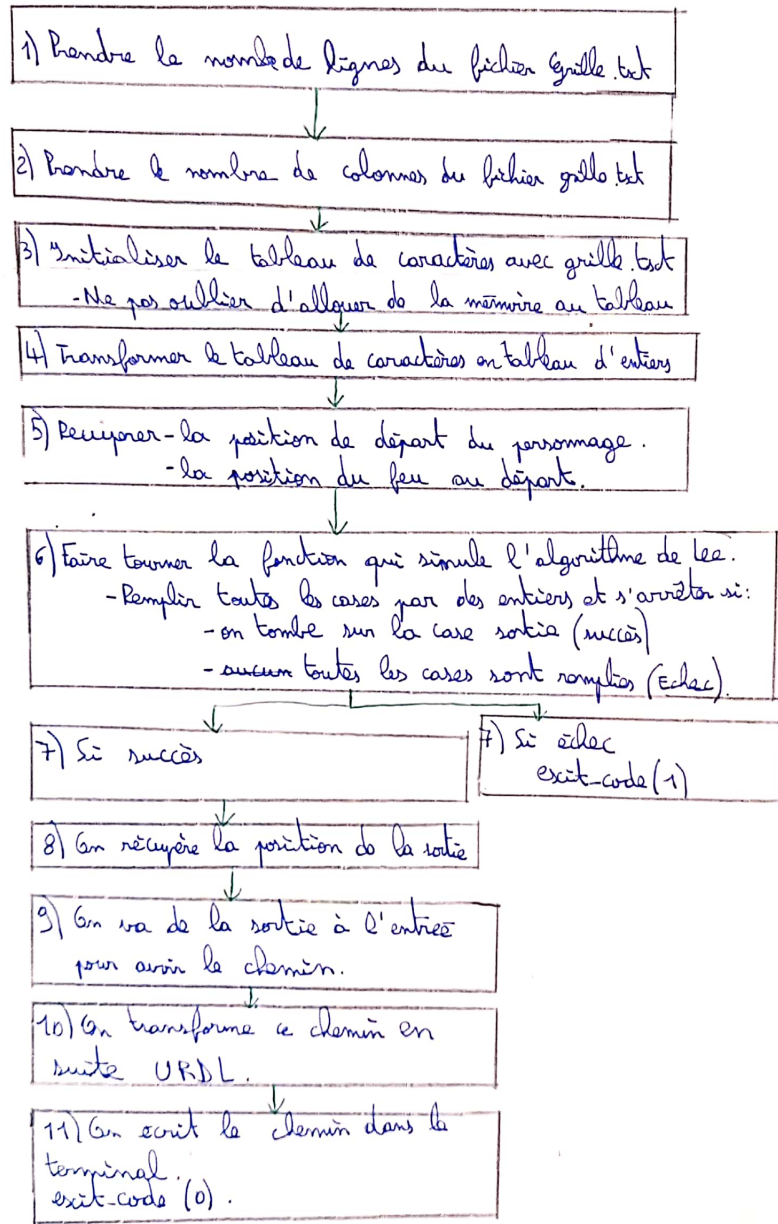 1) Prendre le nombre de lignes du fichier Grille.txt
2) Prendre le nombre de colonnes du fichier grille.txt
3) Initialiser le tableau de caractères avec grille.txt
- Ne pas oublier d'allouer de la mémoire au tableau
4) Transformer le tableau de caractères en tableau d'entiers
5) Recuperer - la position de départ du personnage.
- la position du feu au départ.
6) Faire tourner la fonction qui simule l'algorithme de Lee.
- Remplir toutes les cases par des entiers et s'arrêter si:
- on tombe sur la case sortie (succès)
- aucun toutes les cases sont remplies (Echec).
7) Si succès
7) Si échec
exit-code (1)
8) On récupère la position de la sortie
9) On va de la sortie à l'entrée
pour avoir le chemin.
10) On transforme ce chemin en
suite URDL.
11) On écrit le chemin dans le
terminal.
exit-code (0).